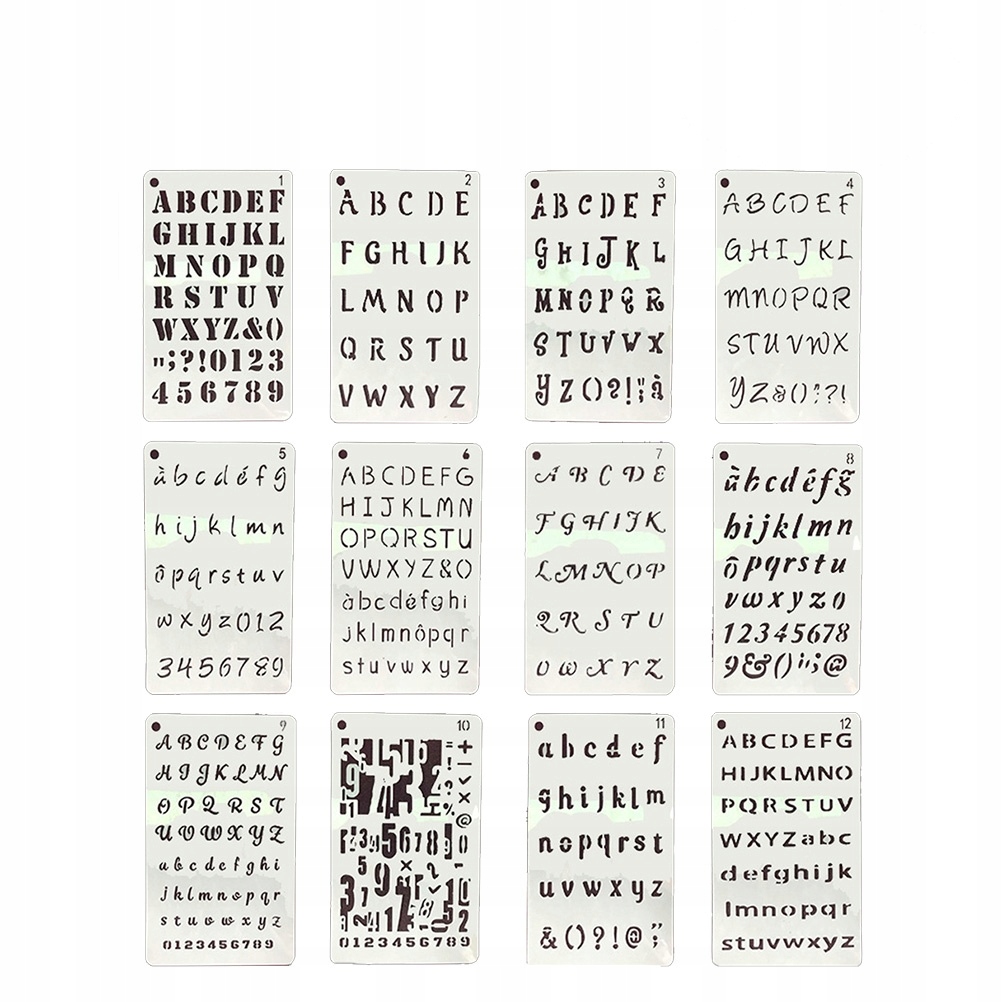 1
ABCDEF
GHIJKL
MNOPQ
RSTUV
WXYZ&()
";?!0123
456789
2
ABCDE
FGHIJK
LMNOP
QRSTU
VWXYZ
3
ABCDEF
GHIJKL
MNOPQR
STUVWX
YZ()?!;"à
4
ABCDEF
GHIJKL
MNOPQR
STUVWX
YZ&():;?!
5
àbcdéfg
hijklmn
ôpqrstuv
wxyz012
3456789
6
ABCDEFG
HIJKLMN
OPQRSTU
VWXYZ&()
àbcdéfghi
jklmnôpqr
stuvwxyz
7
ABCDE
FGHIJK
LMNOP
QRSTU
VWXYZ
8
àbcdéfg
hijklmn
ôpqrstu
vwxyz0
12345678
9&()";@
9
ABCDEFG
HIJKLMN
OPQRST
UVWXYZ
abcdefghi
jklmnopqr
stuvwxyz
0123456789
10
0123456789
11
abcdef
ghijklm
nopqrst
uvwxyz
&()?!@";
12
ABCDEFG
HIJKLMNO
PQRSTUV
WXYZabc
defghijk
lmnopqr
stuvwxyz